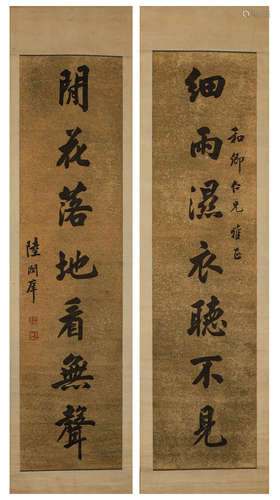 細雨濕衣聽不見
和卿仁兄雅正
閒花落地看無聲
陸潤庠